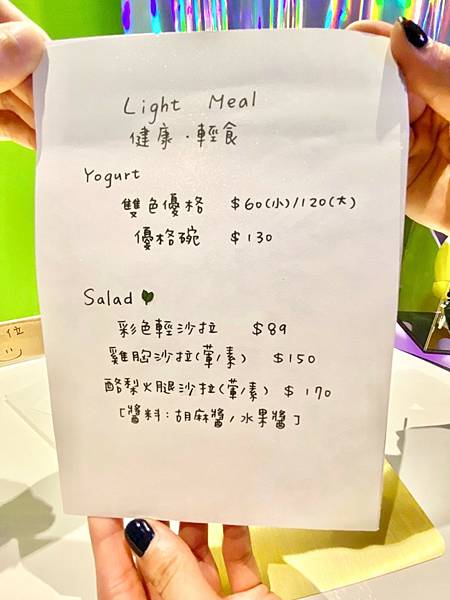 Light Meal
健康．輕食
Yogurt
雙色優格 $60(小)/120(大)
優格碗 $130
Salad
彩色輕沙拉 $89
雞胸沙拉(葷/素) $150
酪梨火腿沙拉(葷/素) $170
[醬料：胡麻醬/水果醬]
位